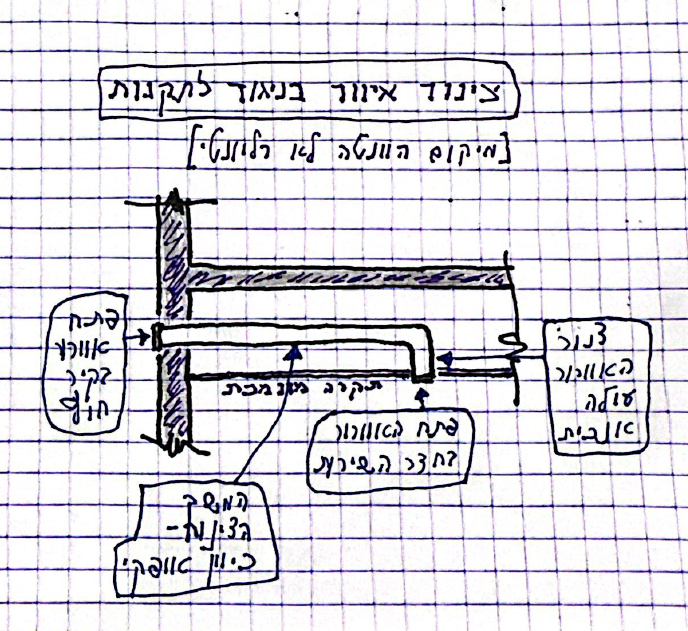 צינור איוור בניגוד לתקנות
[מיקום הוונטה לא רלוונטי]
פתח
אוורור
בקיר
חוץ
צנור
האוורור
עולה
אנכית
תקרה מונמכת
פתח האוורור
בחדר השירות
המשך
הצינור -
כיוון אופקי